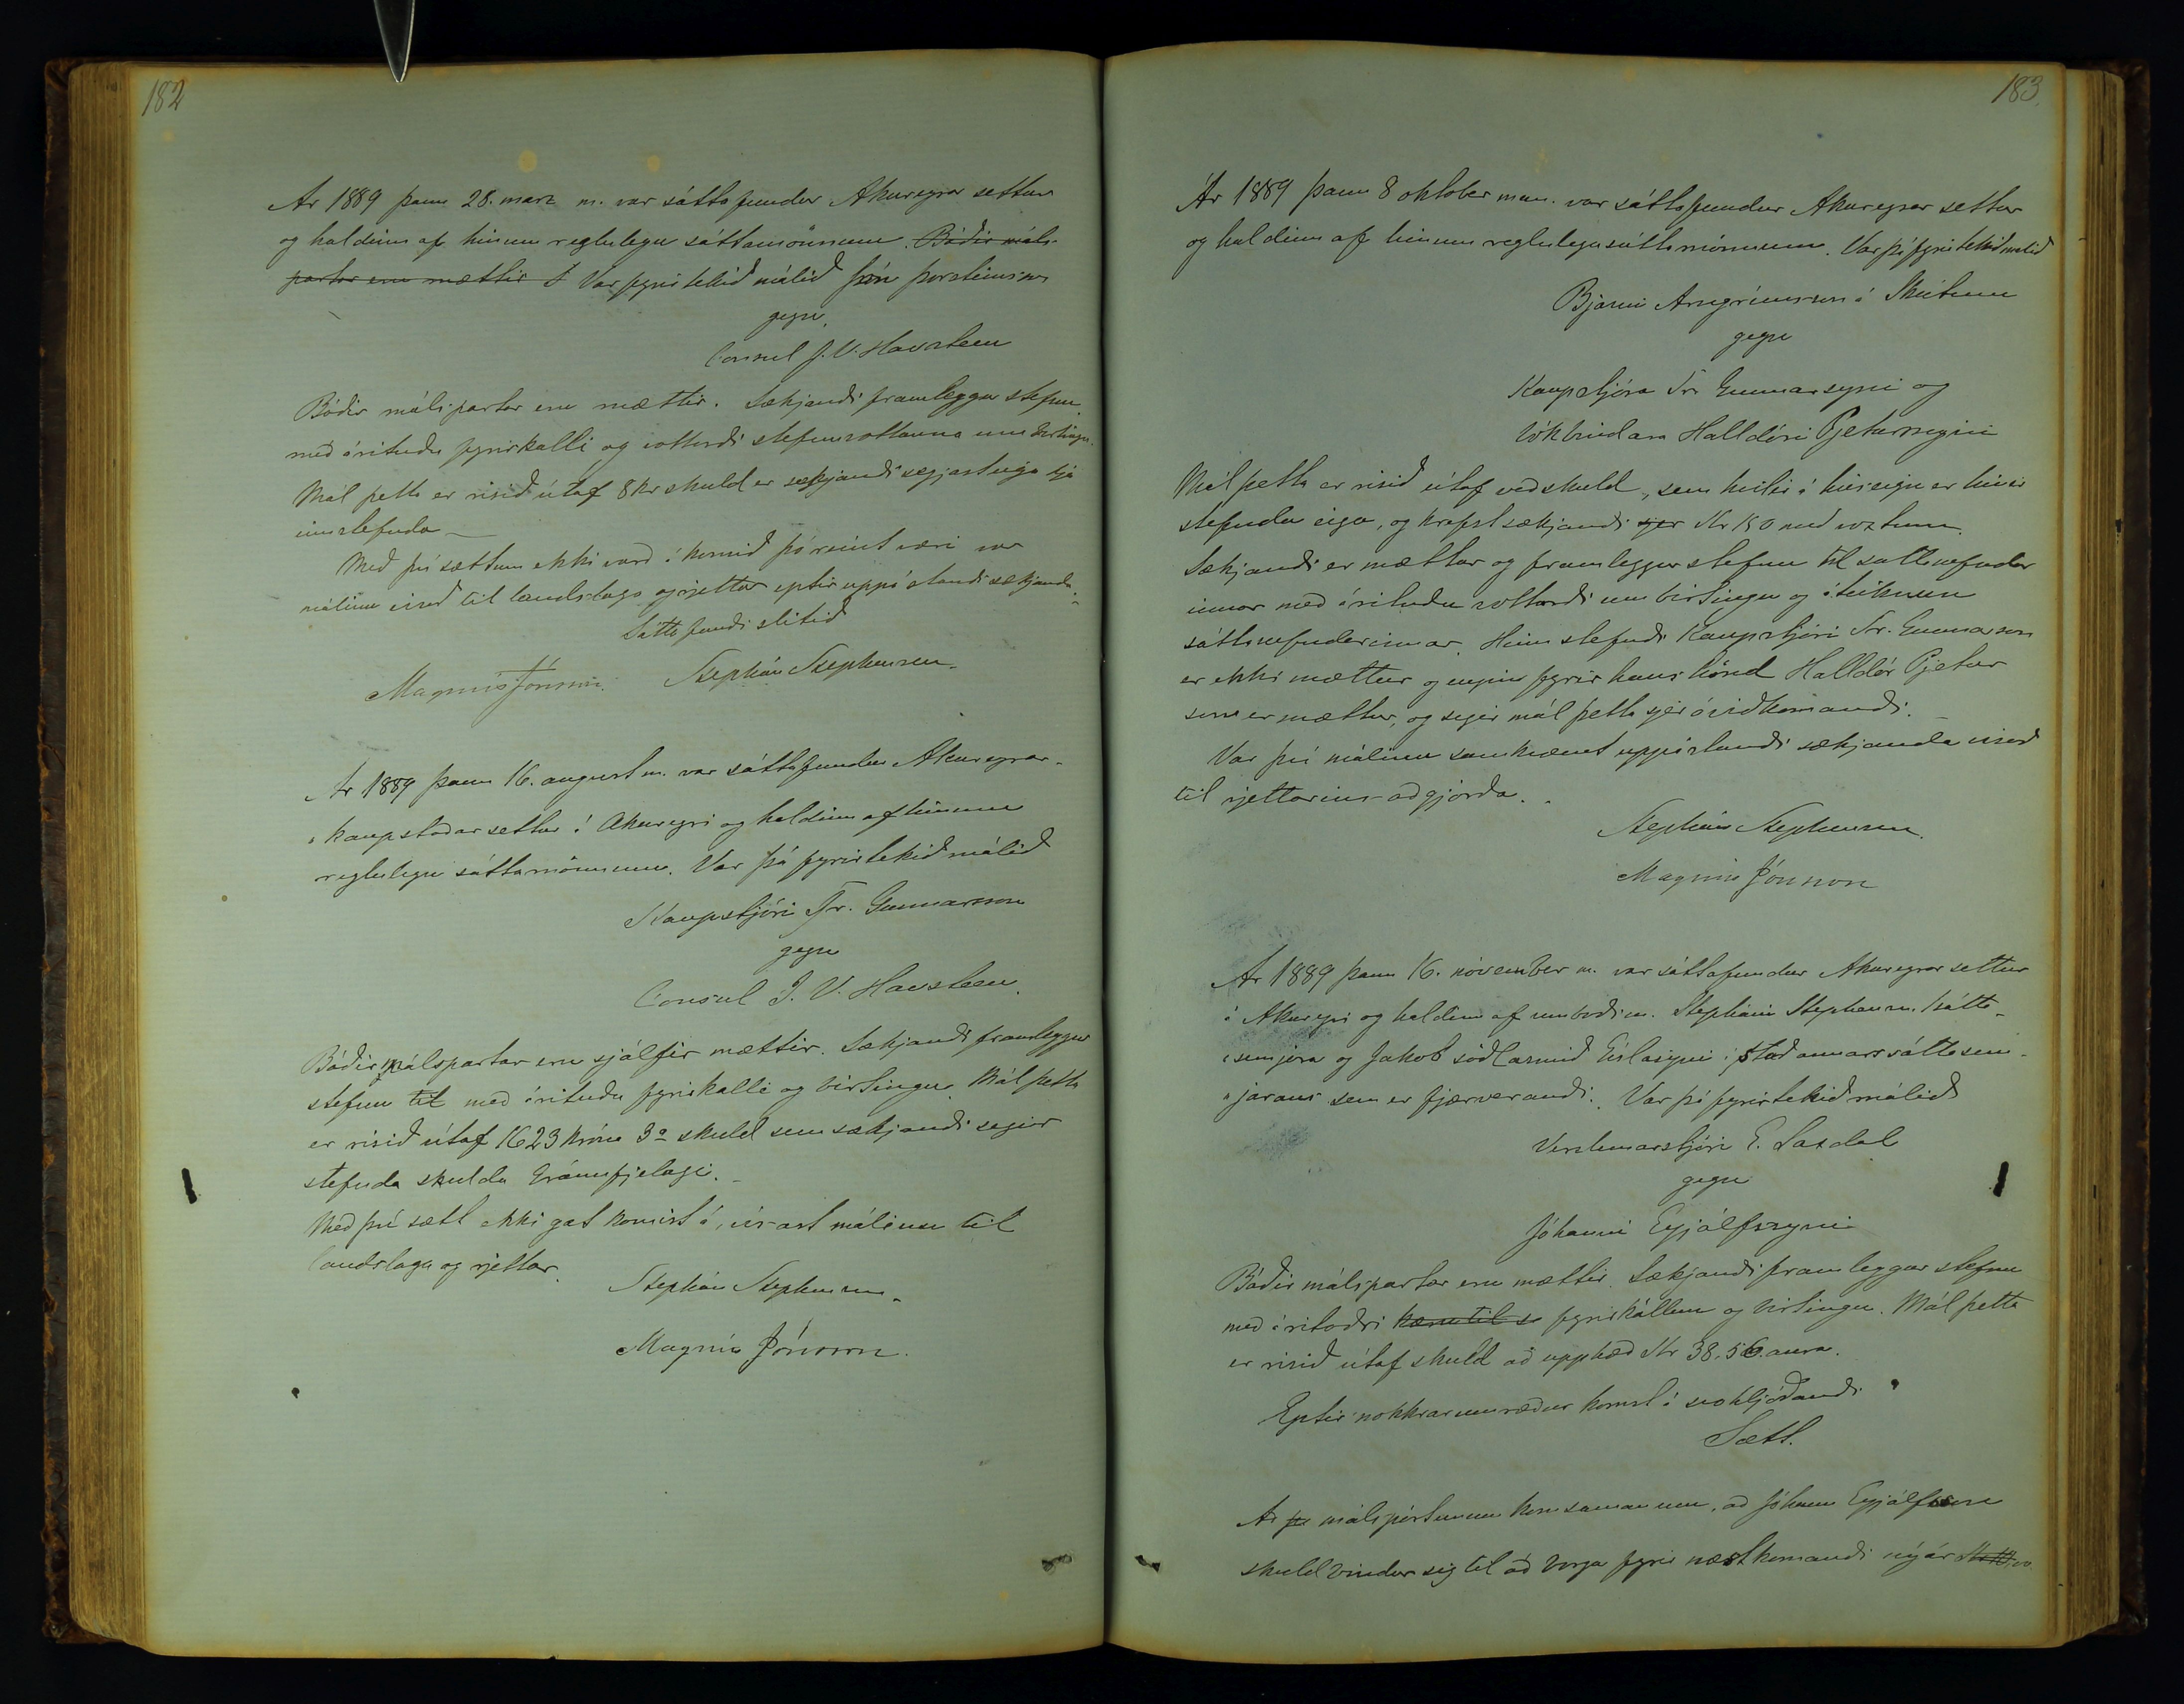 182
Ár 1889 þann 28. marz m. var sáttafundur Akureyrar settur
og haldinn af hinum reglulegu sáttamönnum. Báðir máls-
partar eru mættir Var fyrirtekið málið Jón Þorsteinsson
gegn
Consul J. V. Havsteen
Báðir málspartar eru mættir. Sækjandi framleggur stefnu
með árituðu fyrirkalli og vottorði stefnuvottanna um birtingu.
Mál þetta er risið útaf 8 kr skuld er sækjandi segjast eiga hjá
innstefnda
Með því sættum ekki varð ákomið þó reint væri var
málinu vísað til landslaga og rjettar eptir uppástandi sækjanda.
Sáttafundi slitið
Magnús Jónsson. Stephán Stephensen.
Ár 1889 þann 16. august m. var sáttafundur Akureyrar-
"kaupstaðar settur í Akureyri og haldinn af hinum
reglulegu sáttamönnum. Var þá fyrirtekið málið
Kaupstjóri Tr. Gunnarsson
gegn
Consul J. V. Havsteen.
Báðir málspartar eru sjálfir mættir. Sækjandi framleggur
stefnu til með árituðu fyrirkalli og birtingu. Mál þetta
er risið útaf 1623 króna 3a skuld sem sækjandi segir
stefnda skulda Gránufjelagi.
Með því sætt ekki gat komist á, vísast málinu til
landslaga og rjettar.
Stephán Stephensen.
Magnús Jónsson.
183.
Ár 1889 þann 8 oktober mán. var sáttafundur Akureyrar settur
og haldinn af hinum reglulegu sáttamönnum. Var þá fyrirtekið málið
Bjarni Arngrímsson á Skútum
gegn
Kaupstjóra Tr. Gunnarsyni og
bókbindara Halldóri Pjeturssyni
Mál þetta er risið útaf veðskuld, sem hvílir á húseign er hinir
stefndu eiga, og krefst sækjandi sjer Kr 150 með voxtum.
Sækjandi er mættur og framleggur stefnu til sáttanefndar
innar með árituðu vottorði um birtingu og áteiknun
sáttanefndarinnar. Hinn stefndi Kaupstjóri Tr. Gunnarson
er ekki mættur og enginn fyrir hans hönd Halldór Pjetur
son er mættur, og segir mál þetta sjer óviðkomandi.
Var því málinu samkvæmt uppástandi sækjanda vísað
til rjettarins aðgjörða.
Stephán Stephensen.
Magnús Jónsson
Ár 1889 þann 16. nóvember m. var sáttafundur Akureyrar settur
á Akureyri og haldinn af umboðsm. Stepháni Stephensen Sátta-
"semjara og Jakob söðlasmið Gíslasyni í stað annars sáttasem-
"jarans sem er fjærverandi. Var þá fyrirtekið málið
Verslunarstjóri E. Laxdal
gegn
Jóhanni Eyjólfssyni
Báðir málspartar eru mættir. Sækjandi framleggur stefnu
með áritaðri kæru til s fyrirköllun og birtingu. Mál þetta
er risið útaf skuld að upphæð Kr 38.56 aura.
Eptir nokkrar umræður komst á svohljóðandi
Sætt.
At þe málspörtunum kom saman um, að Jóhann Eyjólfsson
skuldbindur sig til að borga fyrir næstkomandi nýár